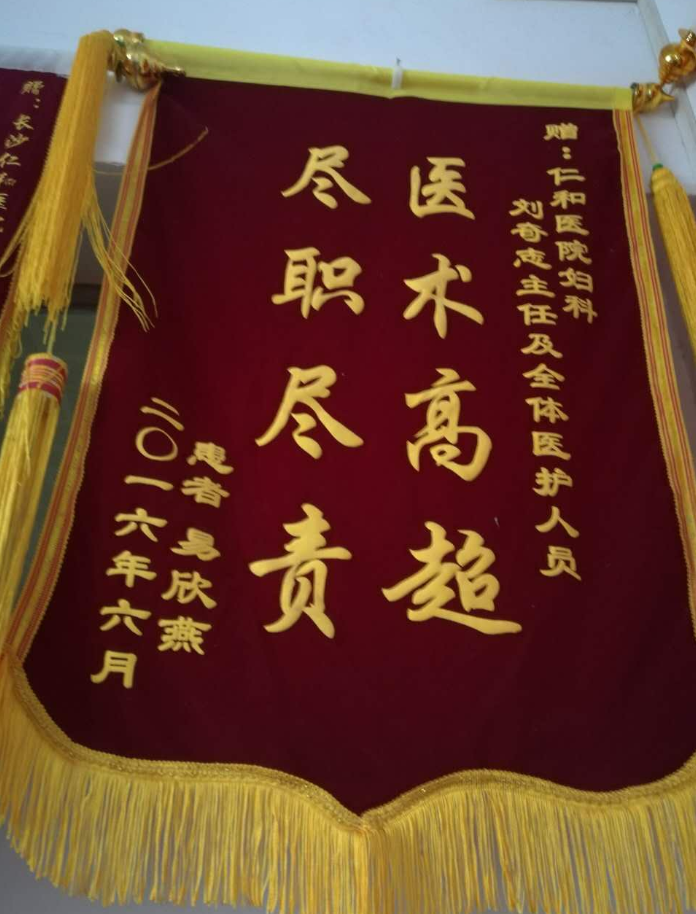 赠：仁和医院妇科
刘奇志主任及全体医护人员
医术高超
尽职尽责
患者 易欣燕
二〇一六年六月
赠：长沙仁和医